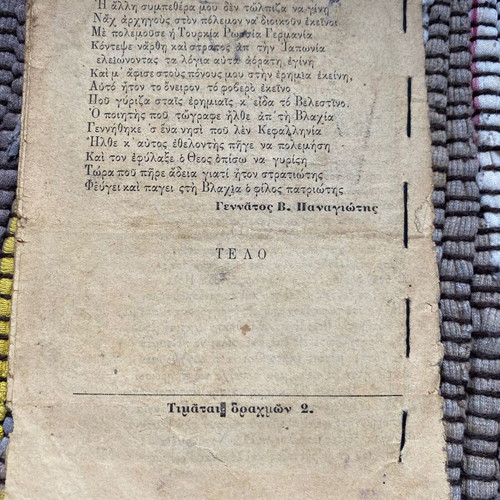 Ἡ ἄλλη συμπεθέρα μου δὲν τὤλπιζα νὰ γίνῃ
Νἄχ ἀρχηγοὺς στὸν πόλεμον νὰ διοικοῦν ἐκεῖνοι
Μὲ πολεμοῦσε ἡ Τουρκία Ρωσσία Γερμανία
Κόντεψε νἄρθῃ καὶ στρατος ἀπ τὴν Ἰαπωνία
ελειώνοντας τα λόγια αὐτὰ ἀόρατη ἐγίνη
Καὶ μ' ἄφισε στοὺς πόνους μου στὴν ἐρημιὰ ἐκείνη,
Αὐτὸ ἦτον τὸ ὄνειρον τὸ φοβερὸ ἐκεῖνο
Ποῦ γύριζα σταῖς ἐρημιαῖς κ' εἶδα τό Βελεστῖνο.
Ὁ ποιητὴς ποῦ τὤγραφε ἦλθε ἀπ' τὴ Βλαχία
Γεννήθηκε 'ς ἕνα νησὶ ποῦ λὲν Κεφαλληνία
Ἦλθε κ' αὐτος ἐθελοντὴς πῆγε να πολεμήση
Καὶ τον ἐφύλαξε ὁ Θεος ὀπίσω να γυρίση
Τώρα ποῦ πῆρε ἄδεια γιατί ἦτον στρατιώτης
Φεύγει καὶ παγει στὴ Βλαχια ὁ φίλος πατριώτης
Γεννᾶτος Β. Παναγιώτης
ΤΕΛΟ
Τιμᾶται δραχμῶν 2.